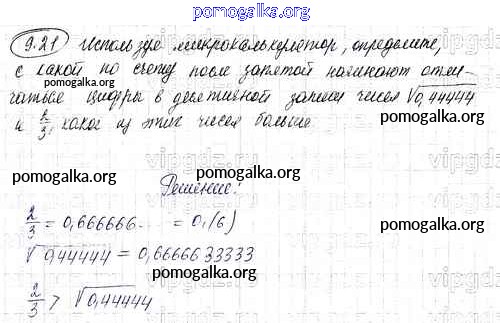 pomogalka.org
9.21 Используя микрокалькулятор, определите,
с какой по счету после запятой начинают отли-
pomogalka.org
чаться цифры в десятичной записи чисел √0,44444
и 2/3, какое из этих чисел больше.
pomogalka.org
pomogalka.org
Решение:
2/3 = 0,666666... = 0,(6)
pomogalka.org
√0,44444 = 0,6666633333
pomogalka.org
2/3 > √0,44444
pomogalka.org